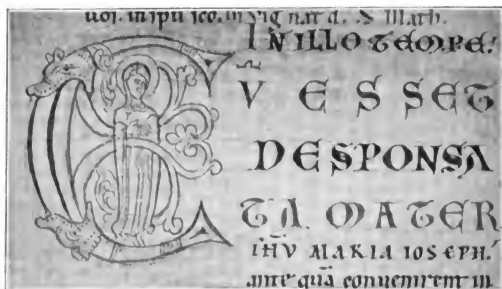 in vig nat d. S Math.
IN ILLO TEMPE:
CV ESSET
DESPONSA
TA MATER
IHV MARIA IOSEPH.
ante quā conuenirent in